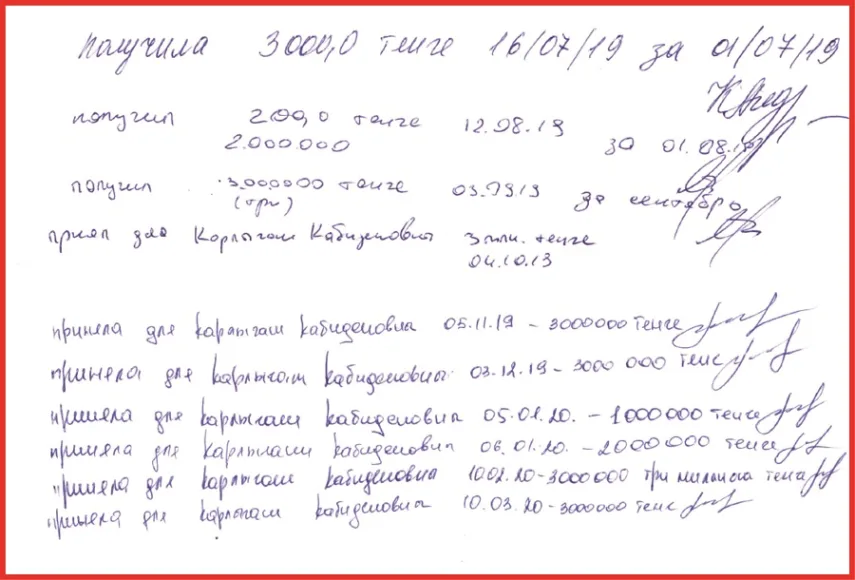 получила 3000,0 тенге 16/07/19 за 01/07/19
получил 200,0 тенге 12.08.19 за 01.08.19
2.000.000
получил 3.000000 тенге 03.09.19 за сентябрь
(три)
принял для Карлыгаш Кабиденовны 3 млн. тенге
04.10.19
приняла для Карлыгаш Кабиденовна 05.11.19 - 3000000 тенге
приняла для Карлыгаш Кабиденовны 03.12.19 - 3000 000 тенге
приняла для Карлыгаш Кабиденовны 05.01.20. - 1000000 тенге
приняла для Карлыгаш Кабиденовны 06.01.20. - 2000000 тенге
приняла для Карлыгаш Кабиденовна 10.02.20 - 3000000 три миллиона тенге
приняла для Карлыгаш Кабиденовны 10.03.20 - 3000000 тенге